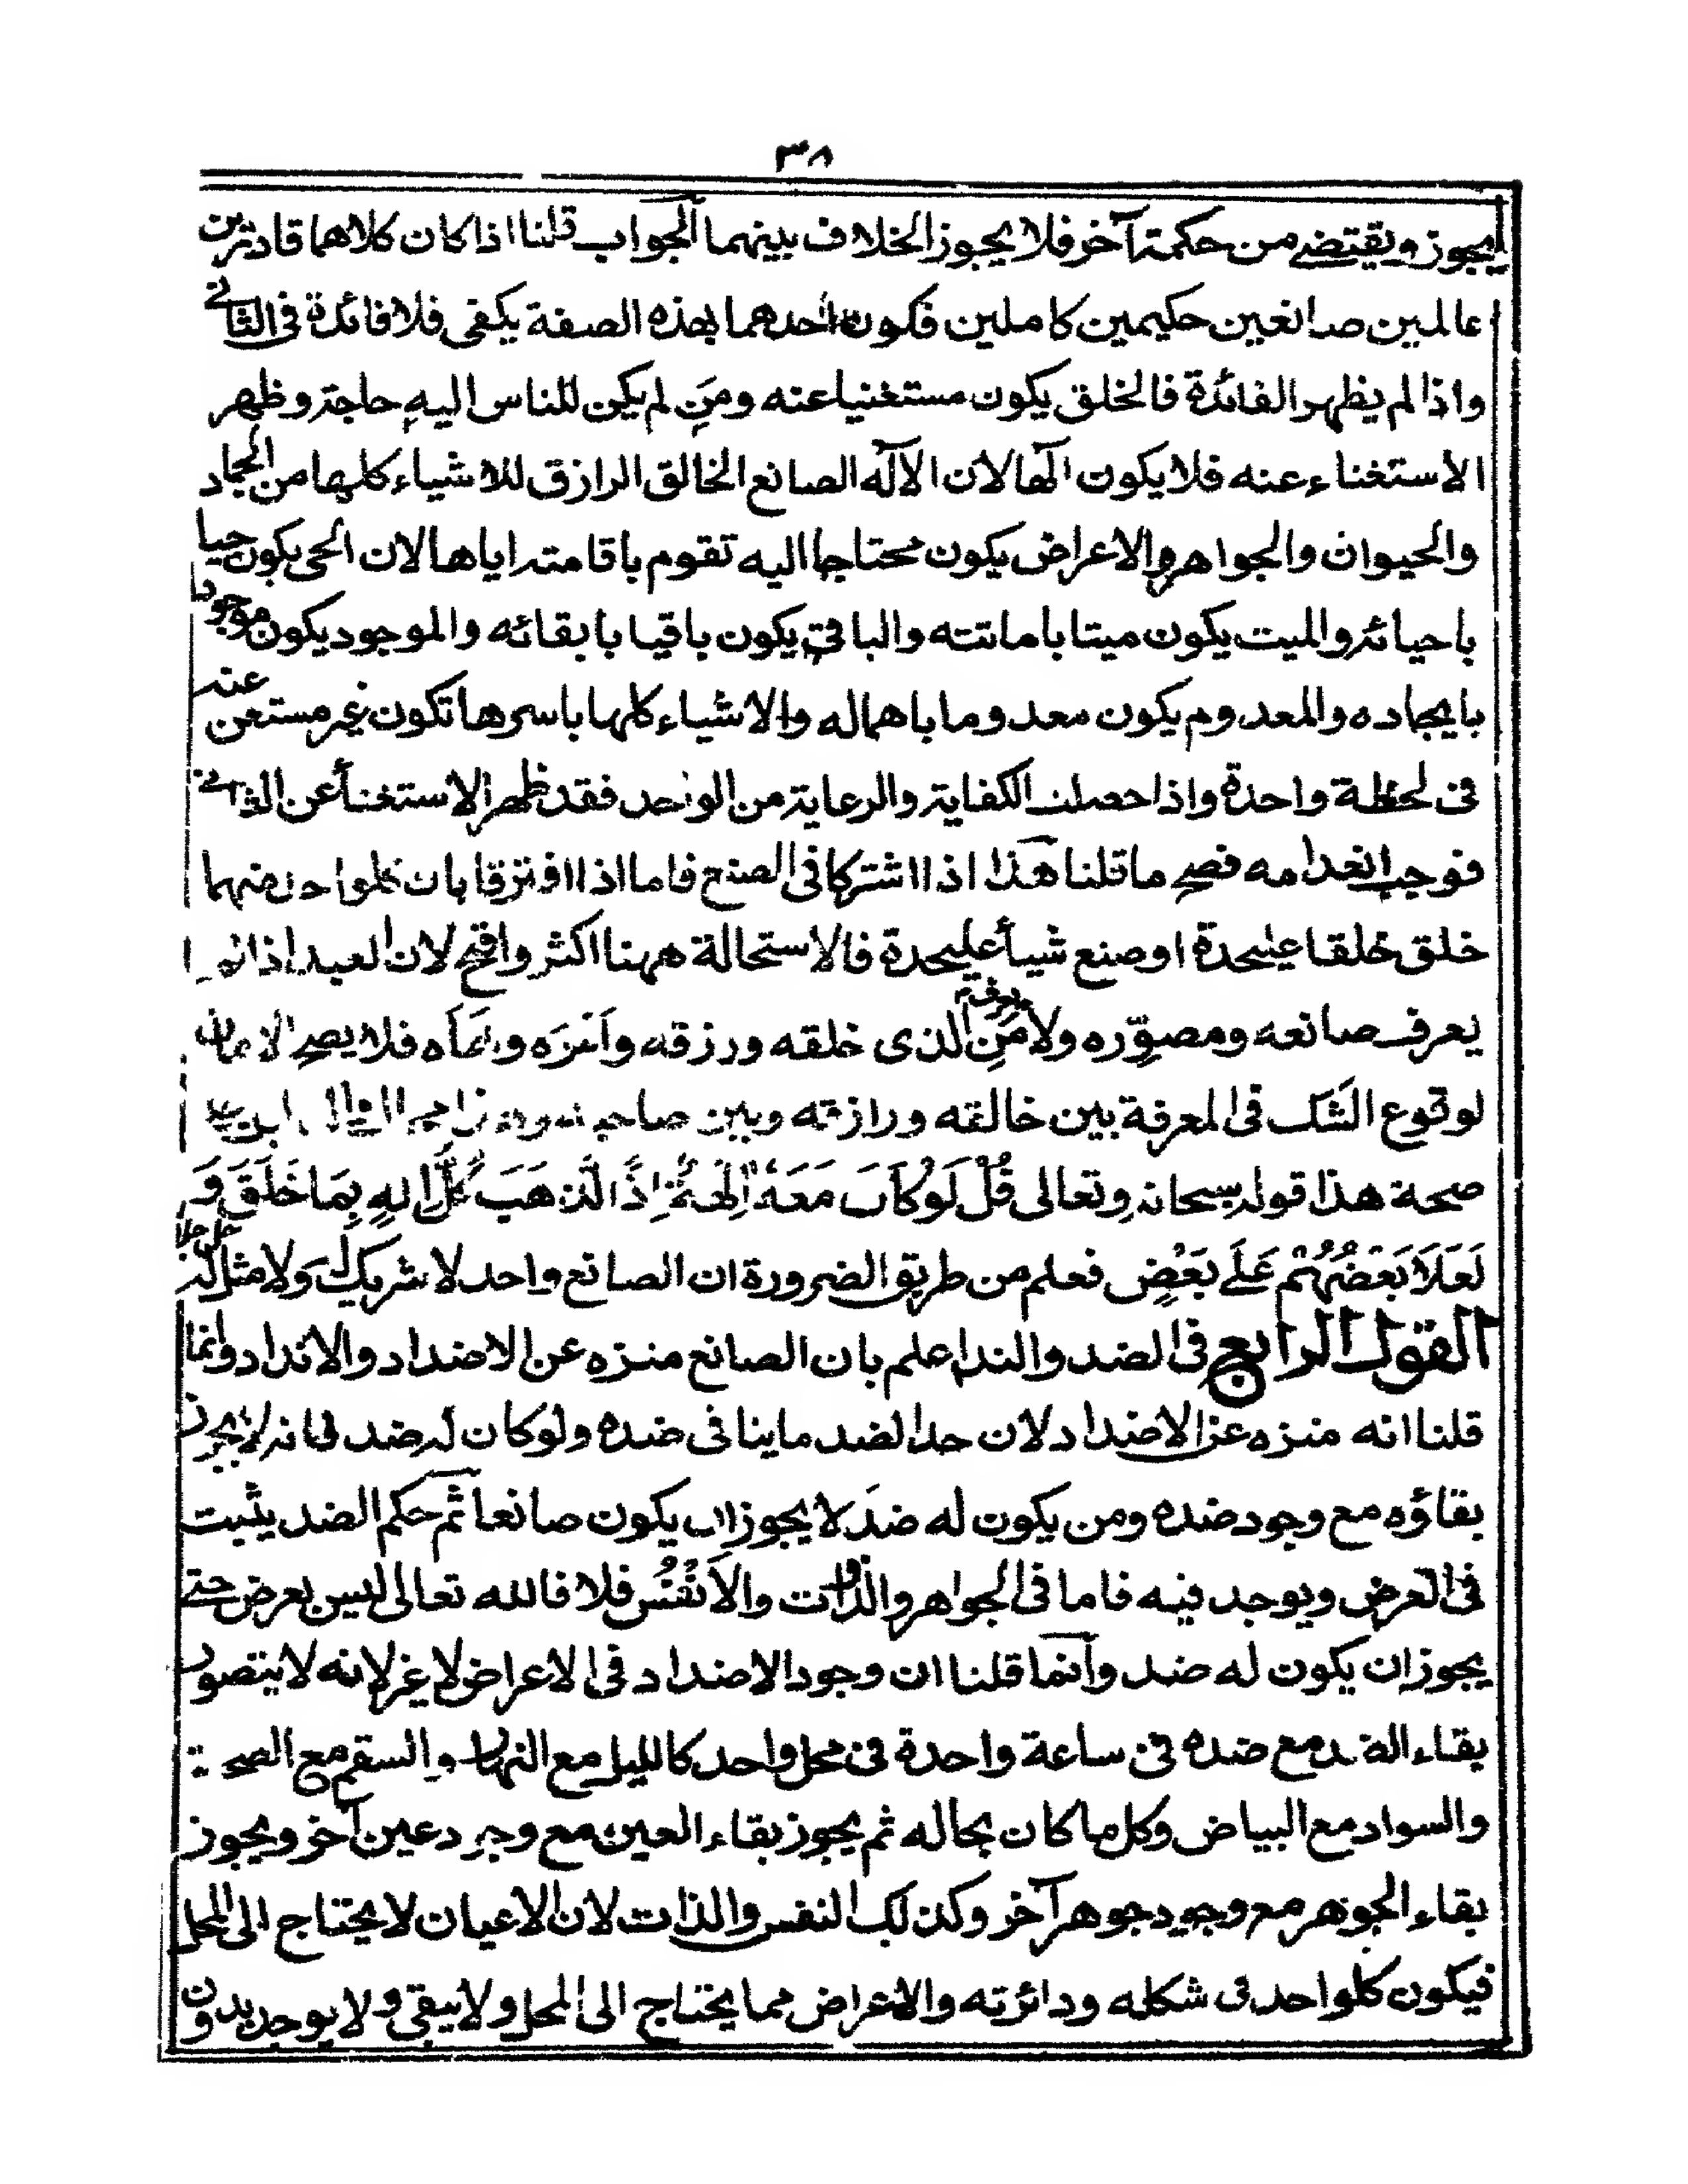 ٣٨
يجوز ويقتضے من حكمة آخر فلا يجوز الخلاف بينهما الجواب قلنا اذا كان كلاهما قادرين
عالمين صانعين حكيمين كاملين فكون احدهما بهذه الصفة يكفى فلا فائدة فى الثانے
واذا لم يظهر الفائدة فالخلق يكون مستغنيا عنه ومَن لم يكن للناس اليهِ حاجة وظهر
الاستغناء عنه فلا يكون الٓها لان الالٓه الصانع الخالق الرازق للاشياء كلها من الجماد
والحيوان والجواهر والاعراض يكون محتاجا اليه تقوم باقامته اياها لان الحى يكون حيا
باحيائه والميت يكون ميتا باماتته والباقى يكون باقيا بابقائه والموجود يكون موجودا
بايجاده والمعدوم يكون معدوما باهماله والاشياء كلها باسرها تكون غير مستغن عنه
فى لحظة واحدة واذا حصلت الكفاية والرعاية من الواحد فقد ظهر الاستغنأ عن الثانے
فوجب انعدامه فصح ما قلنا هذا اذا اشتركا فى الصنع فاما اذا افترقا بان كلواحد منهما
خلق خلقا عليحدة او صنع شيأ عليحدة فالاستحالة ههنا اكثر واقبح لان العبد اذا لم
يعرف صانعه ومصوّره ولا مَن الذى خلقه ورزقه وامَرَه ونَهَاه فلا يصح الايمان
لوقوع الشك فى المعرفة بين خالقه ورازقه وبين صاحبه
صحة هذا قوله سبحانه وتعالى قُلْ لَوْ كَانَ مَعَهٗ اٰلِهَةٌ اِذًا لَّذَهَبَ كُلُّ اِلٰهٍ بِمَا خَلَقَ وَ
لَعَلَا بَعْضُهُمْ عَلٰے بَعْضٍ فعلم من طريق الضرورة ان الصانع واحد لا شريك له ولا مثل له جل جلا
القول الرابع فى الضد والند اعلم بان الصانع منزه عن الاضداد والانداد وانما
قلنا انه منزه عن الاضداد لان حد الضد ما ينافى ضده ولو كان له ضد فانه لا يجوز
بقاؤه مع وجود ضده ومن يكون له ضدَ لا يجوز ان يكون صانعا ثم حكم الضد يثبت
فى العرض ويوجد فيه فاما فى الجواهر والذوات والاَنْفُسُ فلا فالله تعالى ليس بعرض حتے
يجوز ان يكون له ضد وانما قلنا ان وجود الاضداد فى الاعراض لا غير لانه لا يتصور
بقاء الضد مع ضده فى ساعة واحدة فى محل واحد كالليل مع النهار والسقم مع الصحة
والسواد مع البياض وكل ما كان بحاله ثم يجوز بقاء العين مع وجود عين آخر ويجوز
بقاء الجوهر مع وجود جوهر آخر وكذلك النفس والذات لان الاعيان لا يحتاج الى المحل
فيكون كلواحد فى شكله ودائرته والاعراض مما يحتاج الى المحل ولا يبقى ولا يوجد بدون